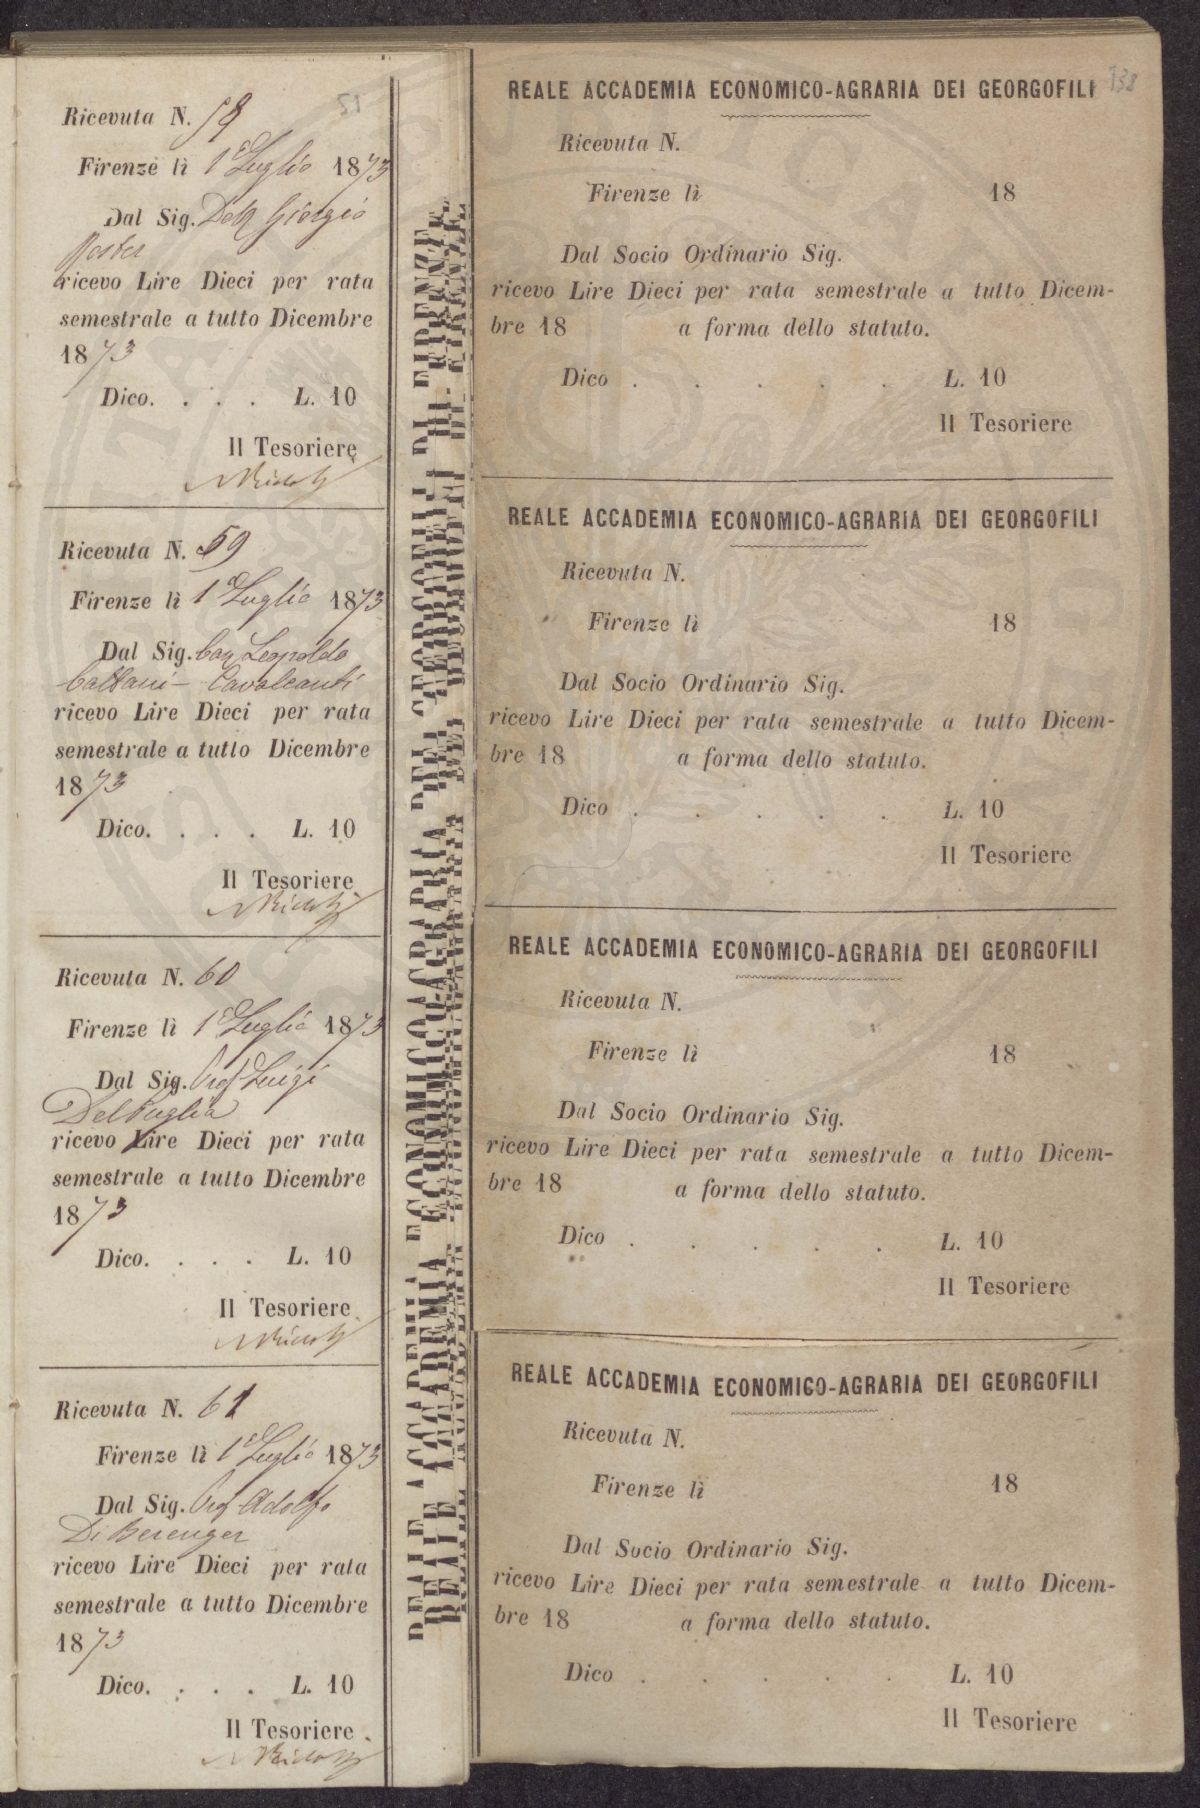 51
Ricevuta N. 58
Firenze lì 1° Luglio 1873
Dal Sig. Dott Giorgio
Roster
ricevo Lire Dieci per rata
semestrale a tutto Dicembre
1873
Dico. . . . L. 10
Il Tesoriere
NRidolfi
Ricevuta N. 59
Firenze lì 1° Luglio 1873
Dal Sig. Cav Leopoldo
Cattani-Cavalcanti
ricevo Lire Dieci per rata
semestrale a tutto Dicembre
1873
Dico. . . . L. 10
Il Tesoriere
NRidolfi
Ricevuta N. 60
Firenze lì 1° Luglio 1873
Dal Sig. Prof Luigi
Del Puglia
ricevo Lire Dieci per rata
semestrale a tutto Dicembre
1873
Dico. . . . L. 10
Il Tesoriere
NRidolfi
Ricevuta N. 61
Firenze lì 1° Luglio 1873
Dal Sig. Prof Adolfo
Di Berenger
ricevo Lire Dieci per rata
semestrale a tutto Dicembre
1873
Dico. . . . L. 10
Il Tesoriere
NRidolfi
REALE ACCADEMIA ECONOMICO-AGRARIA DEI GEORGOFILI DI FIRENZE
138
REALE ACCADEMIA ECONOMICO-AGRARIA DEI GEORGOFILI
Ricevuta N.
Firenze lì 18
Dal Socio Ordinario Sig.
ricevo Lire Dieci per rata semestrale a tutto Dicem-
bre 18 a forma dello statuto.
Dico . . . . . L. 10
Il Tesoriere
REALE ACCADEMIA ECONOMICO-AGRARIA DEI GEORGOFILI
Ricevuta N.
Firenze lì 18
Dal Socio Ordinario Sig.
ricevo Lire Dieci per rata semestrale a tutto Dicem-
bre 18 a forma dello statuto.
Dico . . . . . L. 10
Il Tesoriere
REALE ACCADEMIA ECONOMICO-AGRARIA DEI GEORGOFILI
Ricevuta N.
Firenze lì 18
Dal Socio Ordinario Sig.
ricevo Lire Dieci per rata semestrale a tutto Dicem-
bre 18 a forma dello statuto.
Dico . . . . . L. 10
Il Tesoriere
REALE ACCADEMIA ECONOMICO-AGRARIA DEI GEORGOFILI
Ricevuta N.
Firenze lì 18
Dal Socio Ordinario Sig.
ricevo Lire Dieci per rata semestrale a tutto Dicem-
bre 18 a forma dello statuto.
Dico . . . . . L. 10
Il Tesoriere